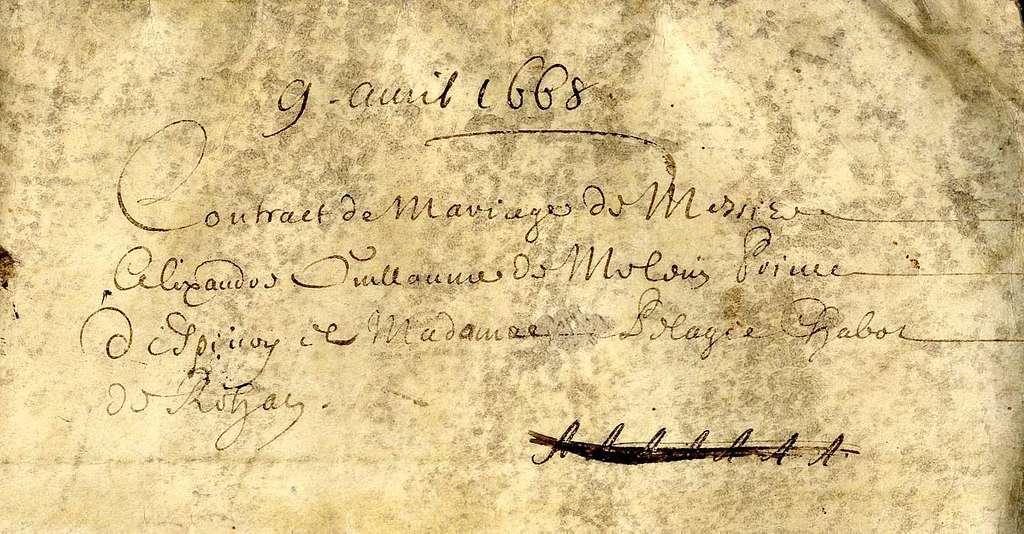 9. auril 1668.
Contract de Mariage de Messire
Alixandre Guillaume de Meleun Prince
D'Espinoy et Madame Pelagie Chabot
de Rohan.
A A A A A A A.